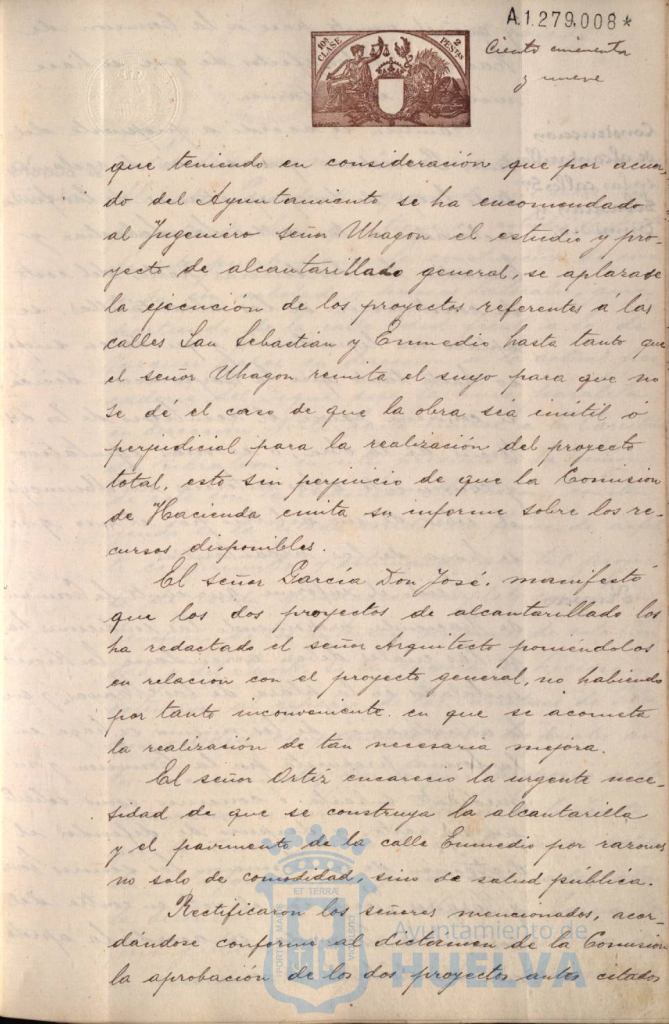 A.1.279,008*
10ª CLASE
2 PESTAS
Ciento cincuenta
y nueve
que teniendo en consideración que por acuer-
do del Ayuntamiento se ha encomendado
al Ingeniero Señor Uhagon el estudio y pro-
yecto de alcantarillado general, se aplazase
la ejecución de los proyectos referentes á las
calles San Sebastian y Enmedio hasta tanto que
el señor Uhagon remita el suyo para que no
se dé el caso de que la obra sea inútil ó
perjudicial para la realización del proyecto
total, esto sin perjuicio de que la Comision
de Hacienda emita su informe sobre los re-
cursos disponibles.
El señor García Don José, manifestó
que los dos proyectos de alcantarillado los
ha redactado el señor Arquitecto poniéndolos
en relación con el proyecto general, no habiendo
por tanto inconveniente en que se acometa
la realización de tan necesaria mejora.
El señor Ortíz encareció la urgente nece-
sidad de que se construya la alcantarilla
y el pavimento de la calle Enmedio por razones
no solo de comodidad, sino de salud pública.
Rectificaron los señores mencionados, acor-
dándose conforme al dictamen de la Comision
la aprobación de los dos proyectos antes citados
Ayuntamiento de
HUELVA
PORTUS MARIS
ET TERRÆ
CUSTODIA